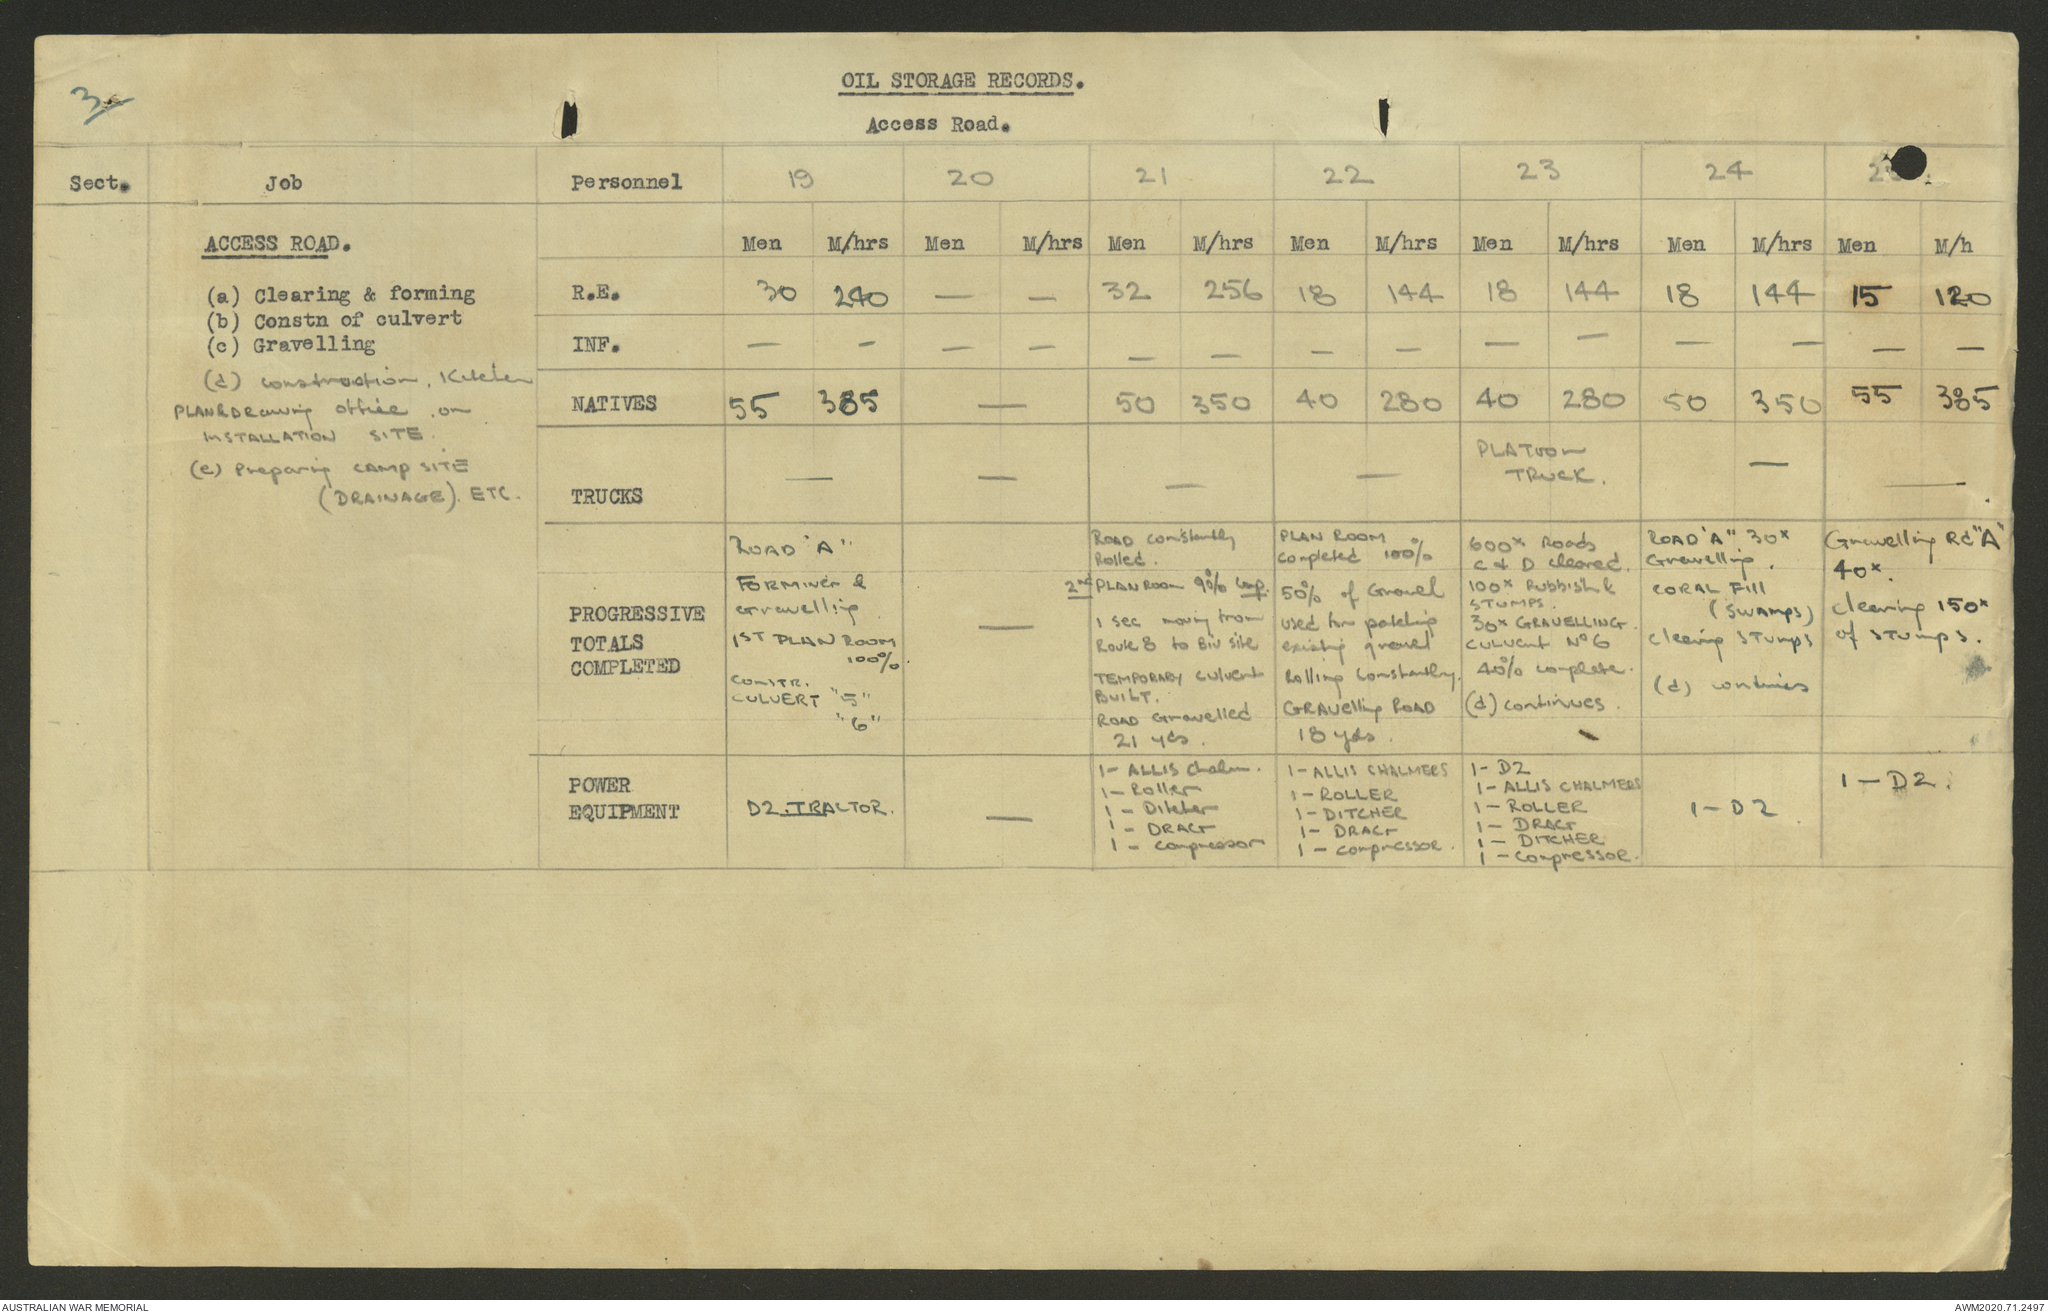 3
OIL STORAGE RECORDS.
Access Road.
Sect. Job Personnel 19 20 21 22 23 24
Men M/hrs Men M/hrs Men M/hrs Men M/hrs Men M/hrs Men M/hrs Men M/h
ACCESS ROAD.
(a) Clearing & forming
(b) Constn of culvert
(c) Gravelling
(d) construction, Kitchen
PLAN & Drawing office on
INSTALLATION SITE.
(e) Preparing CAMP SITE
(DRAINAGE). ETC.
R.E. 30 240 — — 32 256 18 144 18 144 18 144 15 120
INF. — — — — — — — — — — — — — —
NATIVES 55 385 — 50 350 40 280 40 280 50 350 55 385
TRUCKS — — — — PLATOON TRUCK. — —
PROGRESSIVE
TOTALS
COMPLETED
ROAD "A"
FORMING &
Gravelling
1ST PLAN ROOM
100%
CONSTR.
CULVERT "5"
"6"
—
ROAD constantly
Rolled.
2nd PLAN ROOM 90% comp.
1 sec moving from
Route 8 to Biv site
TEMPORARY culvert
BUILT.
ROAD Gravelled
21 yds.
PLAN ROOM
completed 100%
50% of Gravel
used for patching
existing gravel
Rolling constantly.
GRAVelling ROAD
18 yds.
600x Roads
C & D cleared.
100x Rubbish &
STUMPS.
30x GRAVELLING.
CULVERT No 6
40% complete.
(d) continues.
ROAD "A" 30x
Gravelling.
CORAL FILL
(SWAMPS)
Clearing STUMPS
(d) continues
Gravelling Rd "A"
40x.
Clearing 150x
of STUMPS.
POWER
EQUIPMENT
D2. TRACTOR.
—
1 - ALLIS Chalm.
1 - Roller
1 - Ditcher
1 - DRAG
1 - compressor
1 - ALLIS CHALMERS
1 - ROLLER
1 - DITCHER
1 - DRAG
1 - compressor.
1 - D2
1 - ALLIS CHALMERS
1 - ROLLER
1 - DRAG
1 - DITCHER
1 - compressor.
1 - D2
1 - D2.
AUSTRALIAN WAR MEMORIAL
AWM2020.71.2497